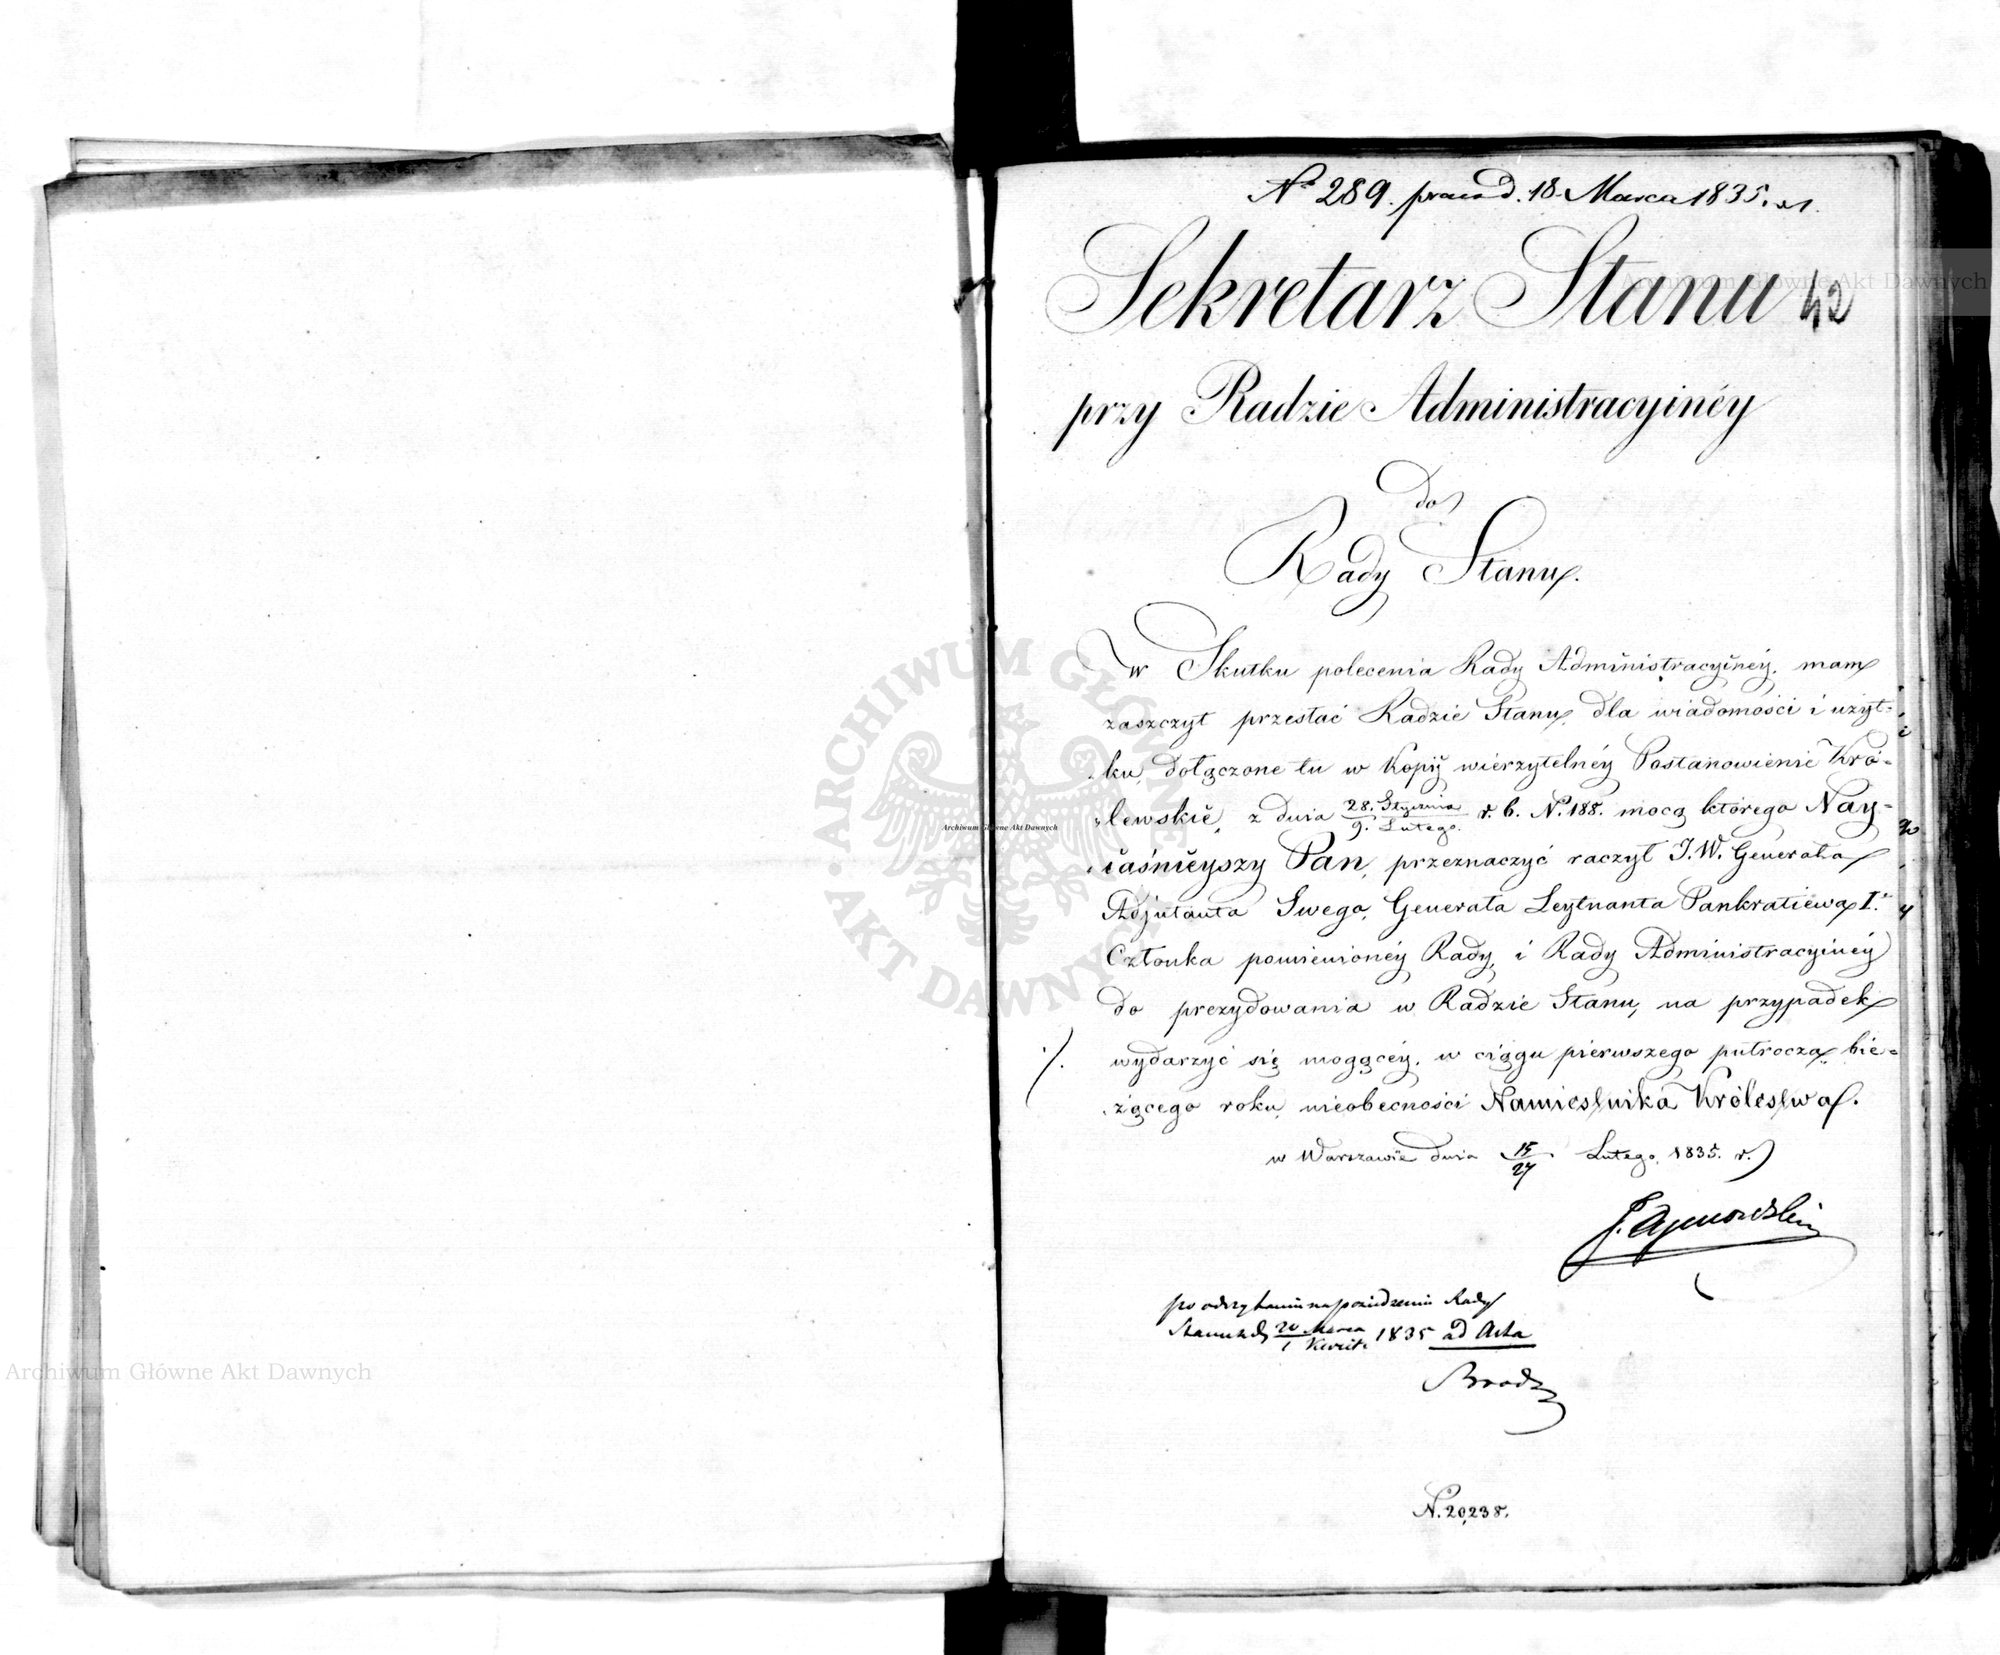 N° 289. praes d. 18 Marca 1835. r.
Sekretarz Stanu 42
przy Radzie Administracyinéy
do
Rady Stanu.
W Skutku polecenia Rady Administracyinéy, mam
zaszczyt przesłać Radzie Stanu, dla wiadomości i użyt-
ku, dołączone tu w kopij wierzytelnéy Postanowienie Kró-
lewskie, z dnia 28. Stycznia / 9. Lutego. r. b. N° 188. mocą którego Nay-
iaśnieyszy Pan, przeznaczyć raczył J. W. Generała
Adjutanta Swego, Generała Leytnanta Pankratiewa I.°
Członka pomienionéy Rady, i Rady Administracyinéy
do prezydowania w Radzie Stanu, na przypadek
wydarzyć się mogącéy, w ciągu pierwszego półrocza bie-
żącego roku, nieobecności Namiestnika Królestwa.
w Warszawie dnia 15/27 Lutego, 1835. r.
po odczytaniu na posiedzeniu Rady
Stanu z d. 20 Marca / 1 Kwiet. 1835 ad Acta
Brodz
N. 20,238.
ARCHIWUM GŁÓWNE AKT DAWNYCH
Archiwum Główne Akt Dawnych
Archiwum Główne Akt Dawnych
Archiwum Główne Akt Dawnych